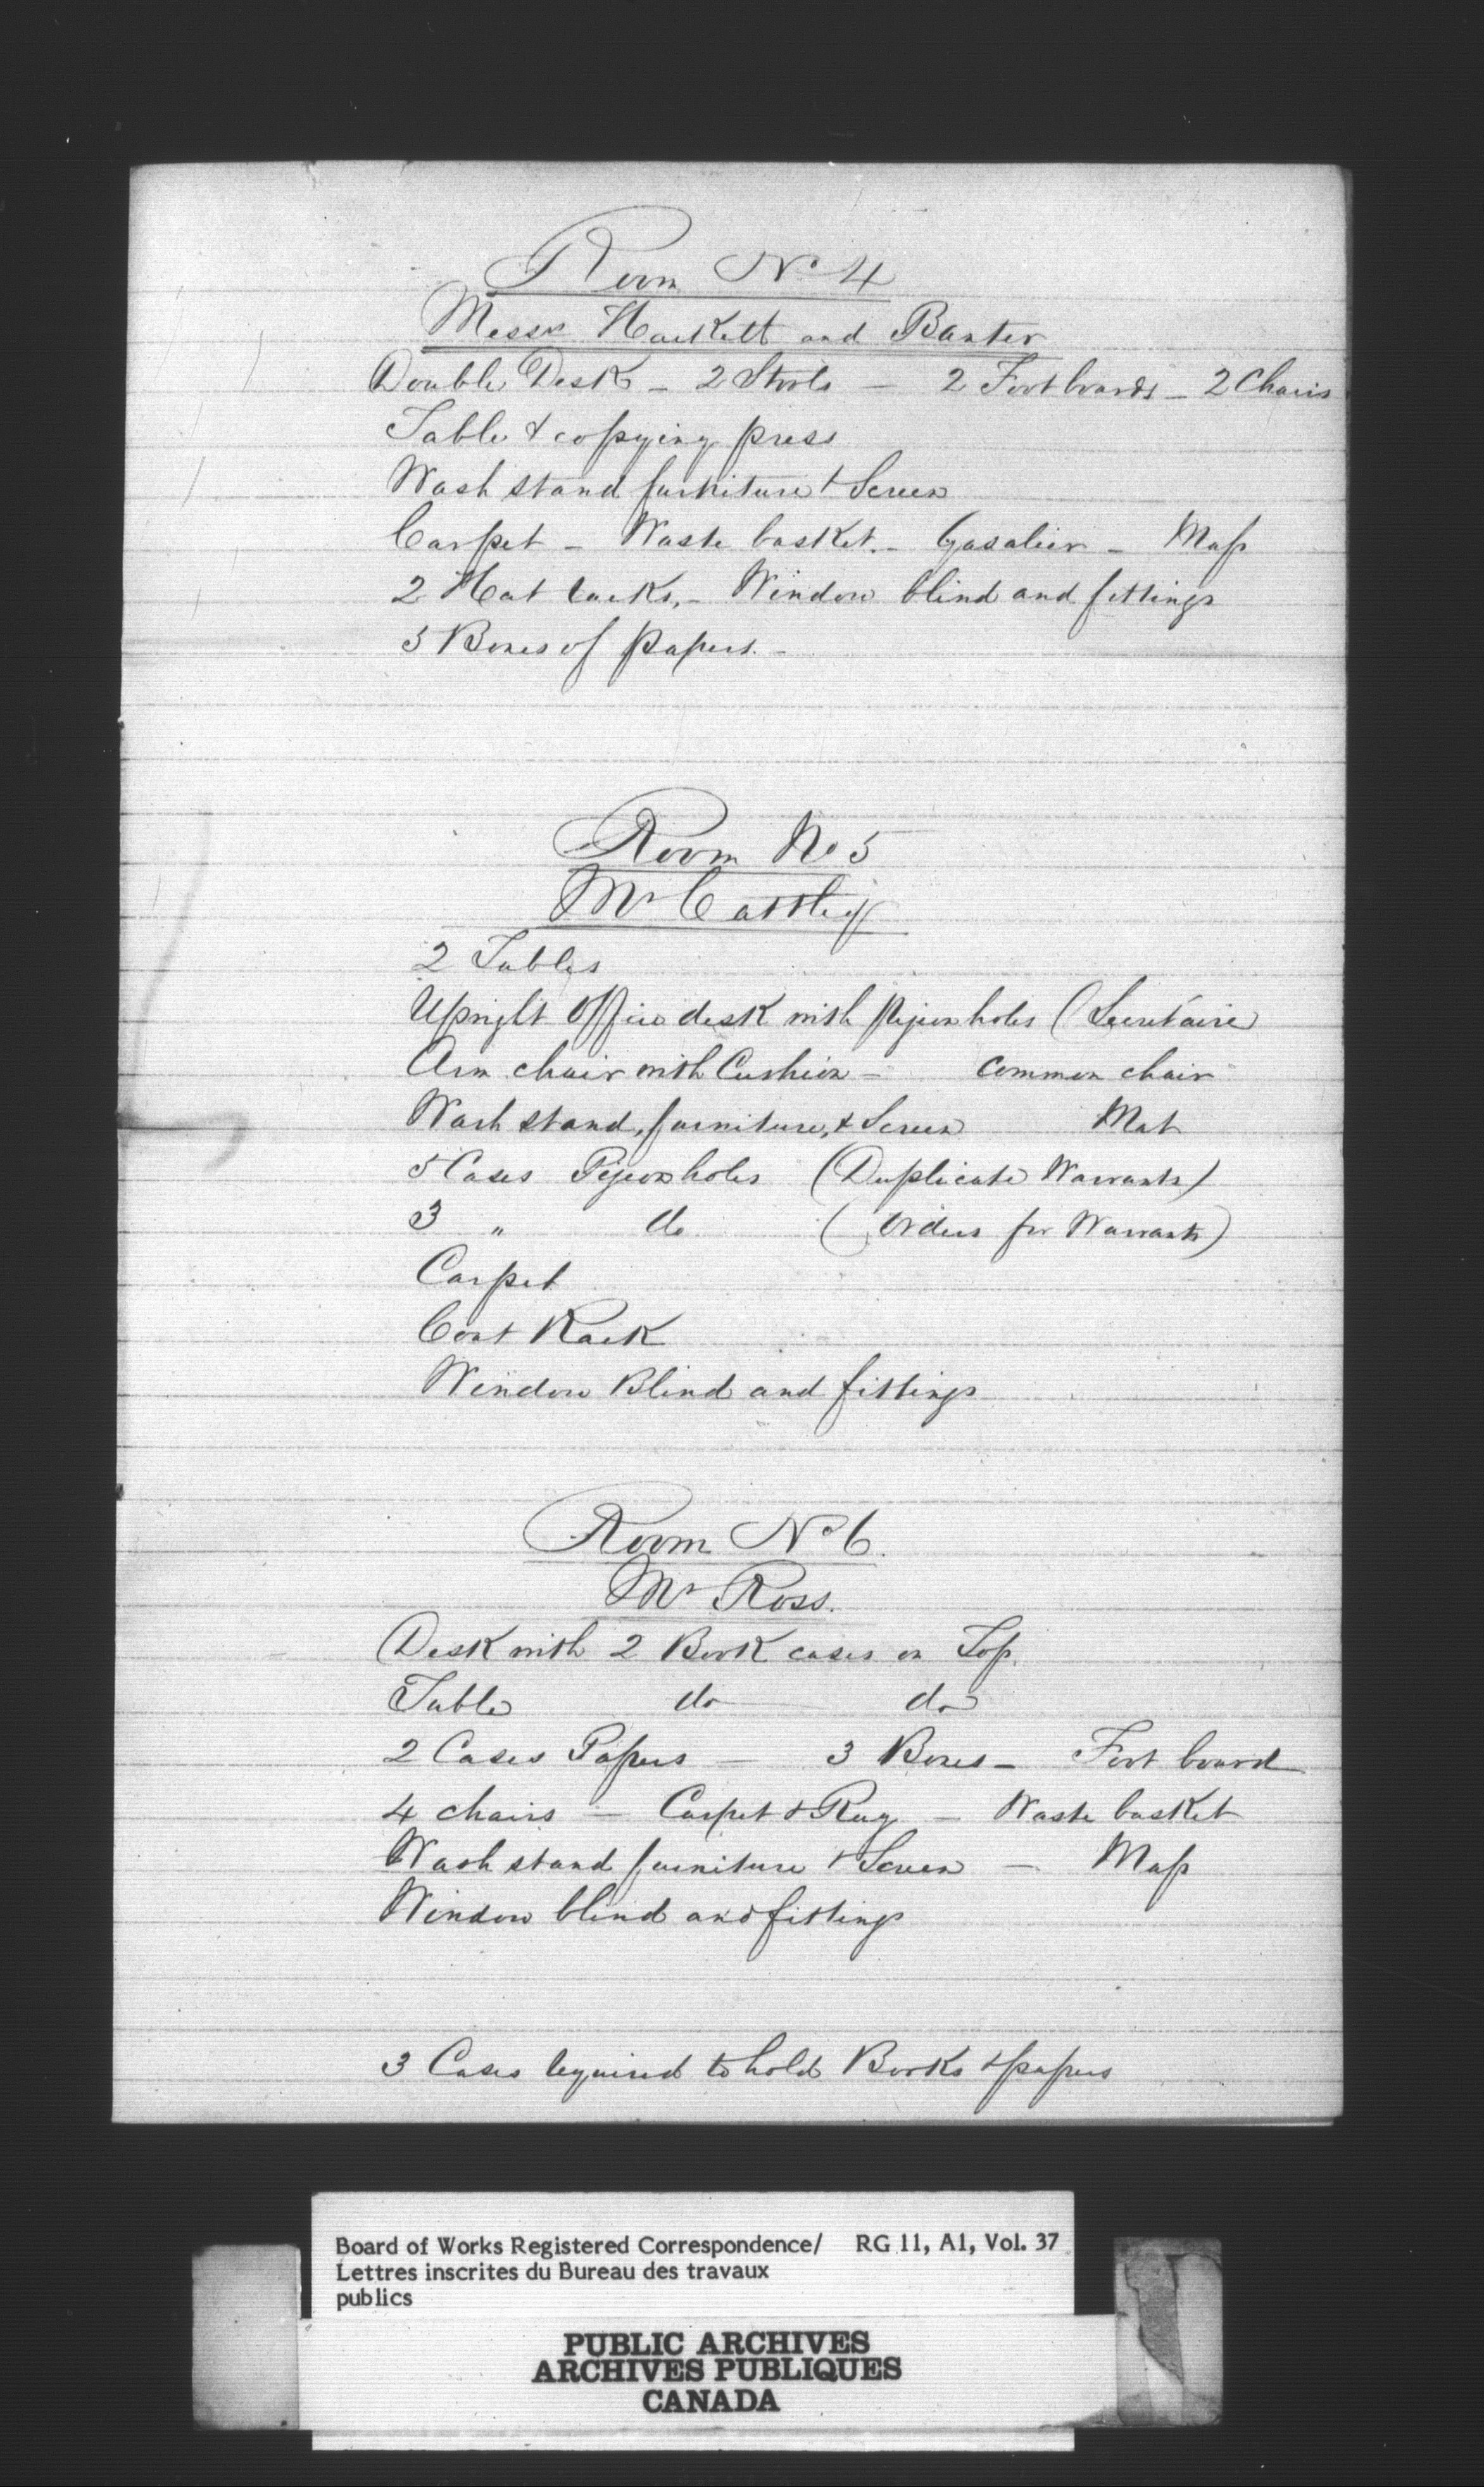 Room No 4
Messrs Hackett and Baxter
Double Desk - 2 Stools - 2 Foot boards - 2 Chairs
Table & copying press
Wash stand furniture & Screen
Carpet - Waste basket. - Gasalier - Map
2 Hat racks, - Window blind and fittings
5 Boxes of Papers. -
Room No 5
Mr Cattley
2 Tables
Upright Office desk with pigeon holes (Secretaire
Arm chair with Cushion - common chair
Wash stand, furniture, & Screen Mat
5 Cases Pigeon holes (Duplicate Warrants)
3 " do (Orders for Warrants)
Carpet
Coat Rack
Window Blind and fittings
Room No 6.
Mr Ross.
Desk with 2 Book cases on Top.
Table do do
2 Cases Papers - 3 Boxes - Foot board
4 chairs - Carpet & Rug - Waste basket
Wash stand furniture & Screen - Map
Window blind and fittings
3 Cases required to hold Books & papers
Board of Works Registered Correspondence/ RG 11, A1, Vol. 37
Lettres inscrites du Bureau des travaux
publics
PUBLIC ARCHIVES
ARCHIVES PUBLIQUES
CANADA